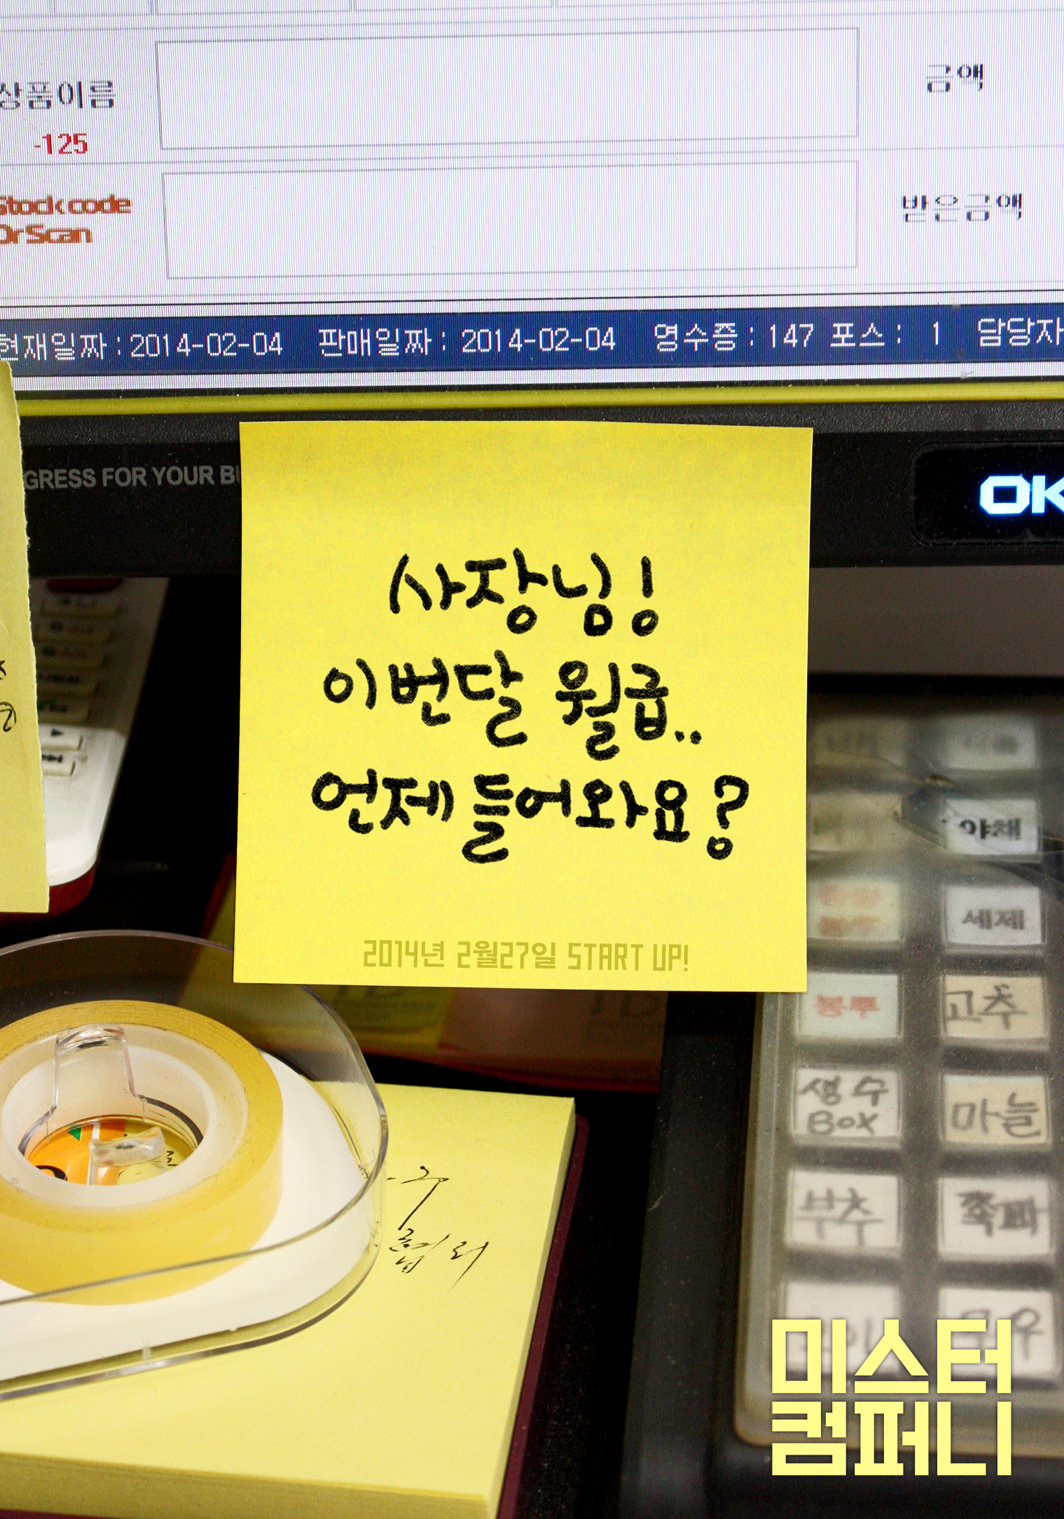 상품이름
금액
-125
Stock code
Or Scan
받은금액
현재일짜 : 2014-02-04 판매일짜 : 2014-02-04 영수증 : 147 포스 : 1 담당자
GRESS FOR YOUR
OK
사장님!
이번달 월급..
언제 들어와요?
2014년 2월27일 START UP!
야채
세제
봉투
고추
생수
BOX
마늘
부추
쪽파
미스터
컴퍼니